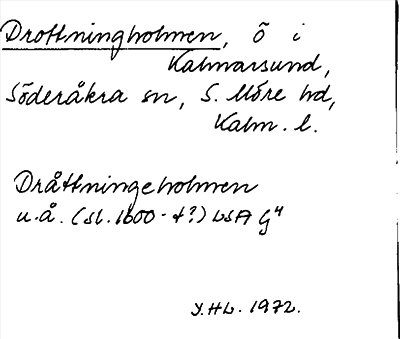 Drottningholmen, ö i
Kalmarsund,
Söderåkra sn, S. Möre hd,
Kalm. l.
Dråttningeholmen
u.å. (sl. 1600-t?) LSA G4
Y.HL. 1972.